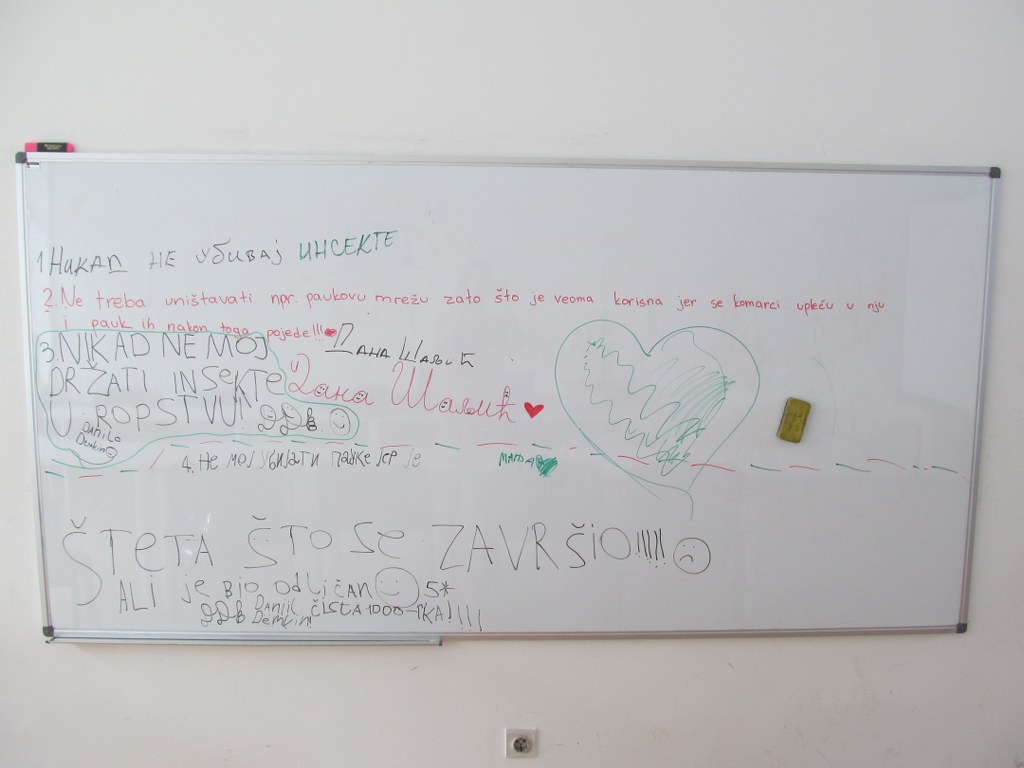 1 Никад не убивај ИНСЕКТЕ
2. Ne treba uništavati npr. paukovu mrežu zato što je veoma korisna jer se komarci upleću u nju
i pauk ih nakon toga pojede!!!
3. NIKAD NE MOJ
DRŽATI INSeKTe
U ROPSTVU!
Danilo
Demkin
4. Не мој убијати пауке јер је
ŠTeTA ŠTO Se ZAVRŠiO!!!!!
ALI je BIO ODLIČAN 5*
DDB Danil ČISTA 1000-TKA!!!!
Demkin!